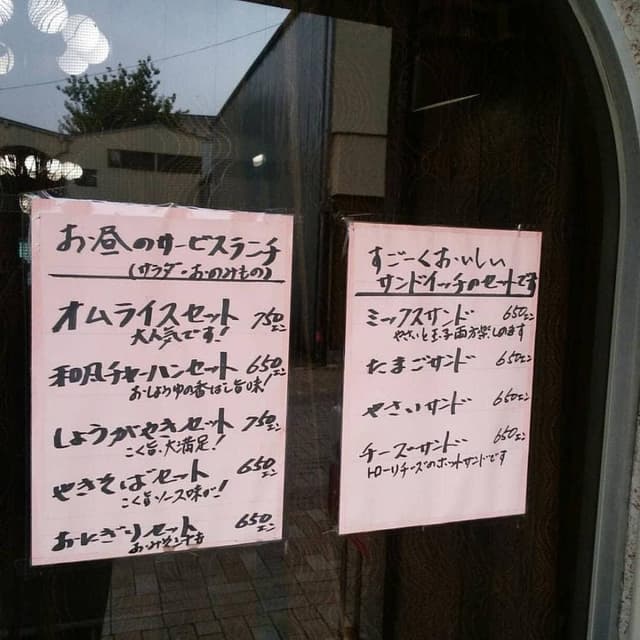 お昼のサービスランチ
(サラダ・おのみもの)
オムライスセット 750エン
大人気です!
和風チャーハンセット 650エン
おしょうゆの香ばし旨味!
しょうがやきセット 750エン
こく旨、大満足!
やきそばセット 650エン
こく旨ソース味が!
おにぎりセット 650エン
すごーくおいしい
サンドイッチのセットです
ミックスサンド 650エン
やさいとたま子両方楽しめます
たまごサンド 650エン
やさいサンド 650エン
チーズサンド 650エン
トローリチーズのホットサンドです